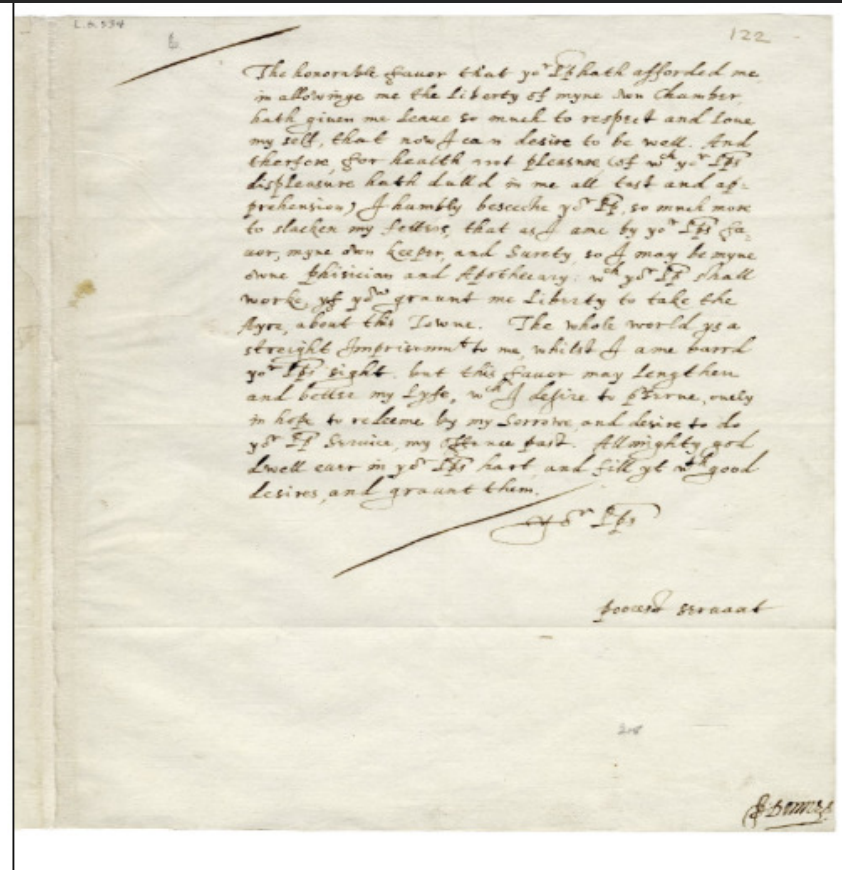 L.b.534
122
6
The honorable favor that yor Lp hath afforded me,
in allowinge me the Liberty of myne own Chamber,
hath given me leave so much to respect and love
my self, that now I can desire to be well. And
therfore for health not pleasure (of wch yor Lps
displeasure hath dulld in me all tast and ap:
prehension) I humbly beseeche yor Lp, so much more
to slacken my fetters, that as I ame by yor Lps fa:
uor, myne own keeper, and Surety, so I may be myne
owne phisician and Apothecary: wch yor Lp shall
worke, yf yow graunt me Liberty to take the
Ayre, about this Towne. The whole world ys a
streight Imprisonmt to me, whilst I ame barrd
yor Lps sight. but this favor may lengthen
and better my Lyfe, wch I desire to prserue, onely
in hope to redeeme by my sorrowe, and desire to do
yor Lp Service, my offence past. Allmighty god
dwell ever in yor Lps hart, and fill yt wth good
desires, and graunt them.
Yor Lps
poorest servant
218
J: Donne